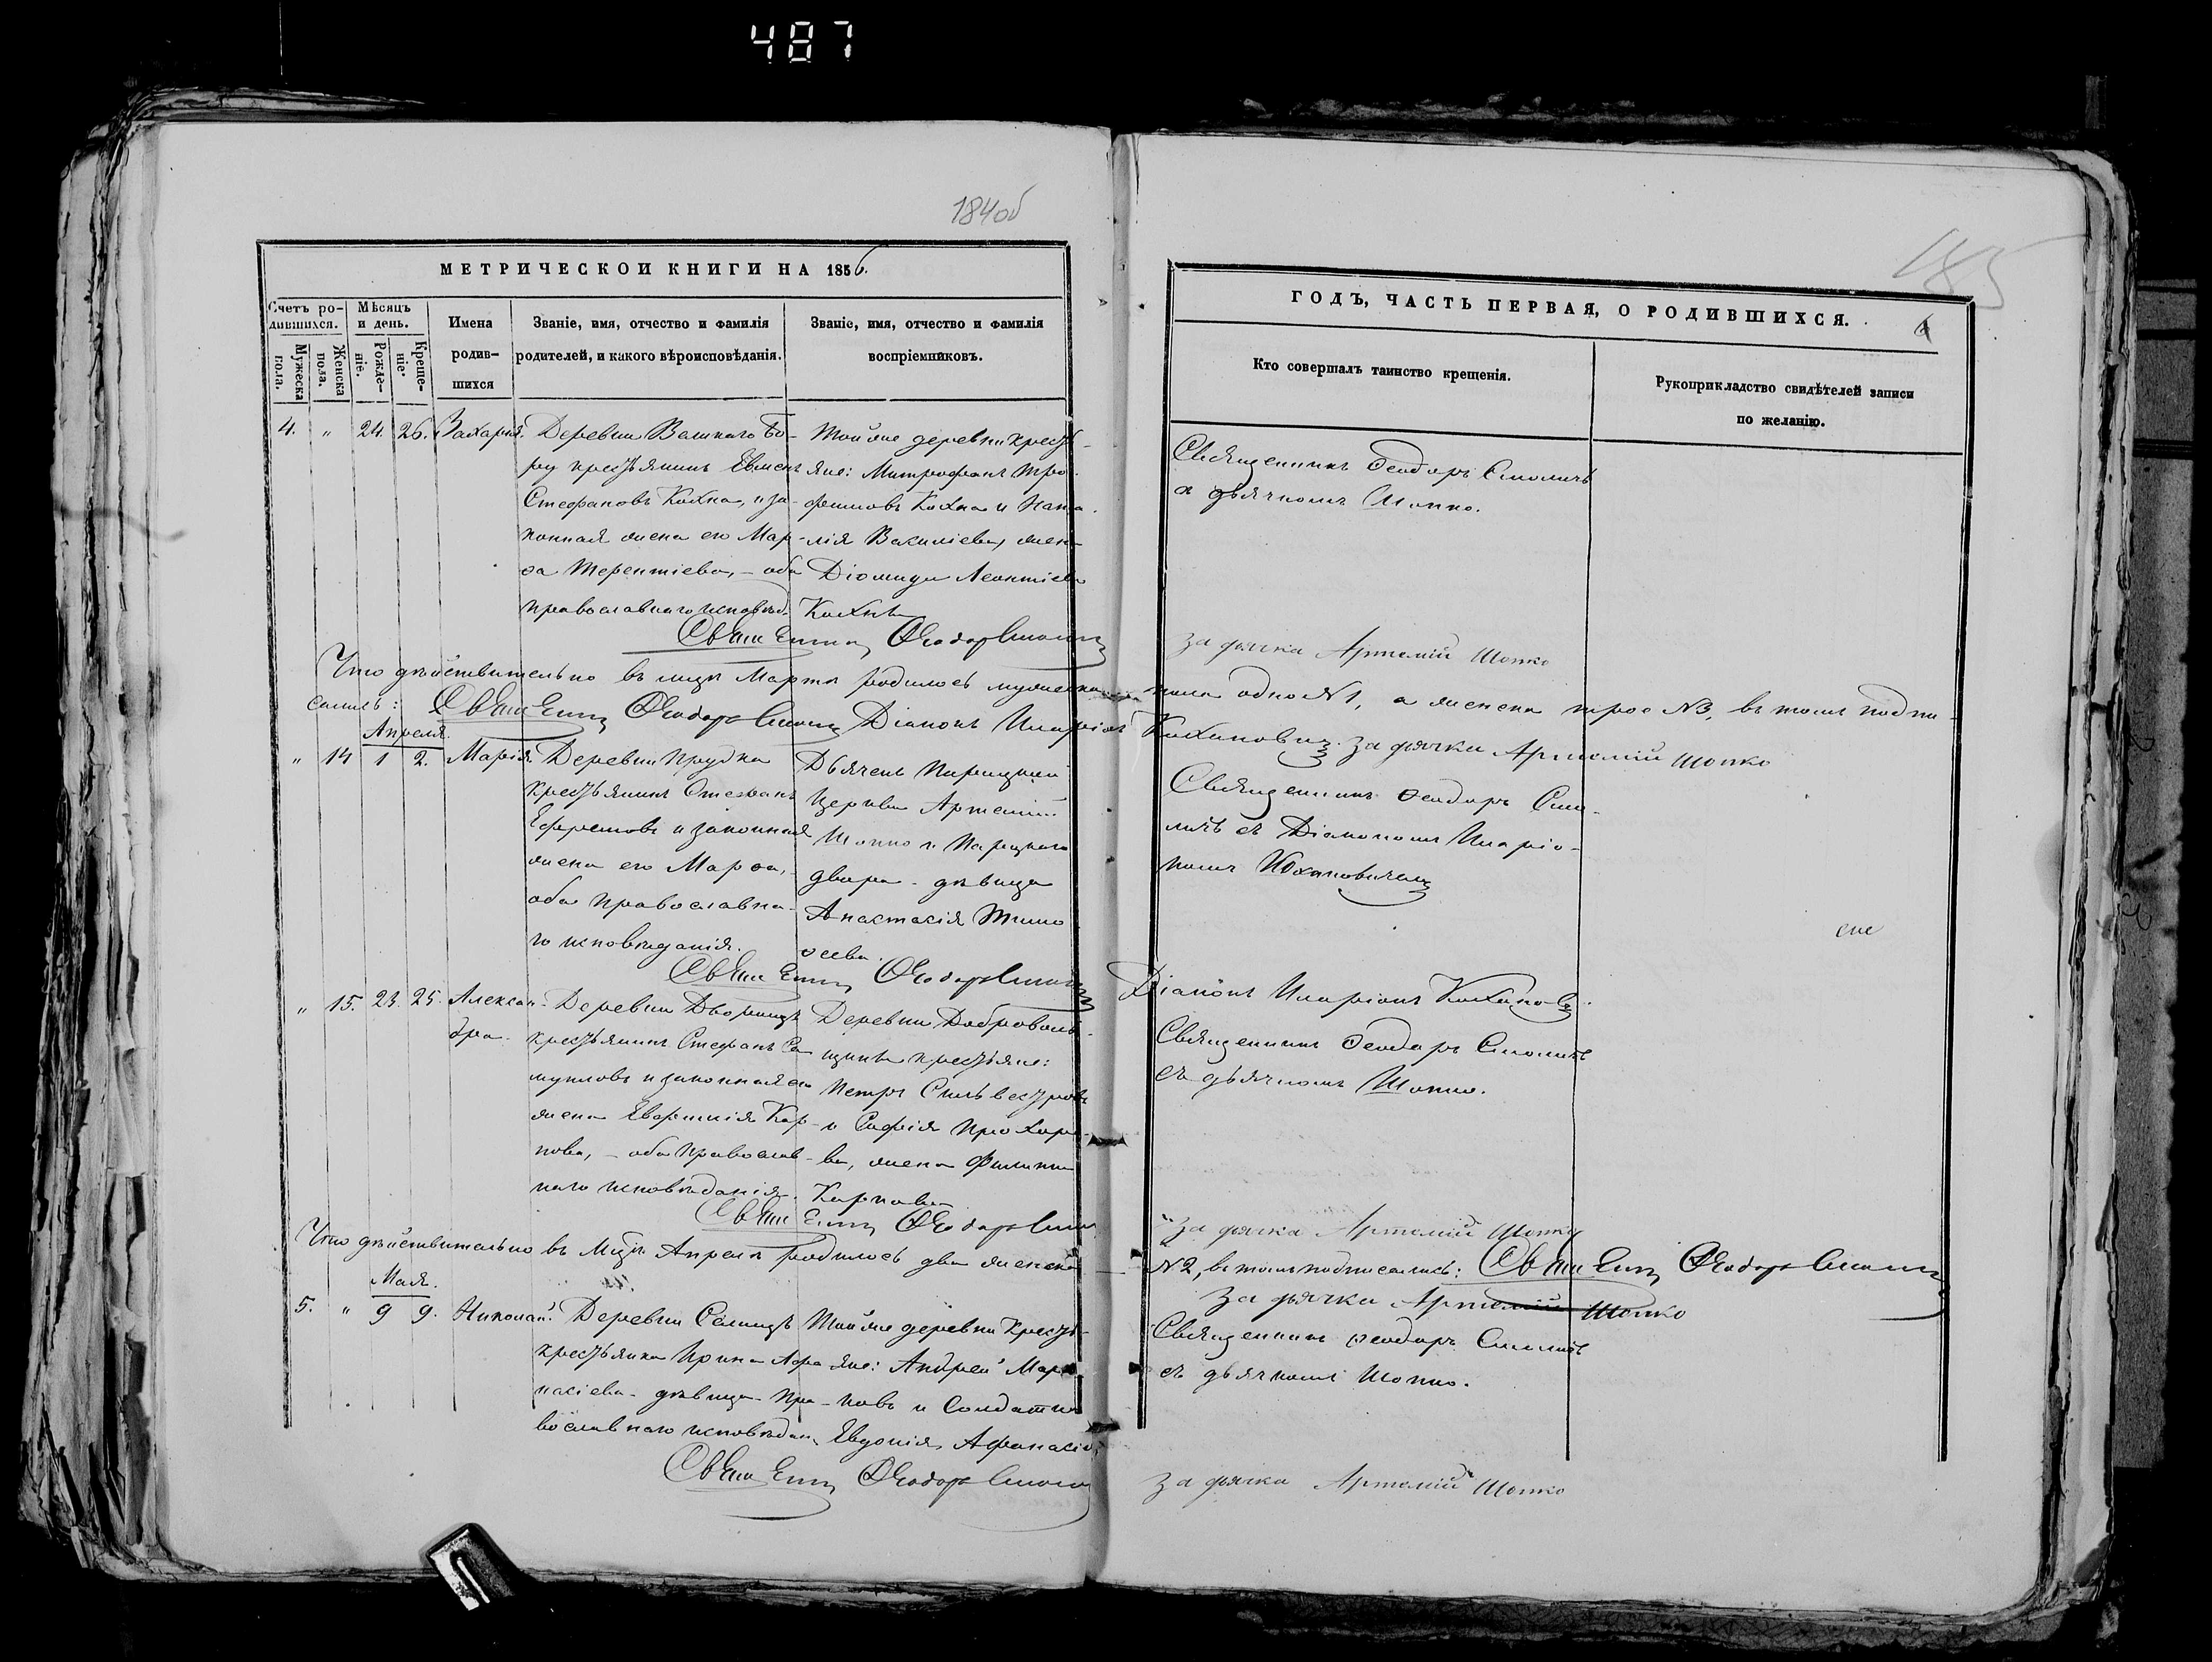 487
184об
185
МЕТРИЧЕСКОЙ КНИГИ НА 1856.
Счетъ родившихся.
Мѣсяцъ и день.
Мужеска пола.
Женска пола.
Рожденіе.
Крещеніе.
Имена родившихся
Званіе, имя, отчество и фамилія родителей, и какого вѣроисповѣданія.
Званіе, имя, отчество и фамилія воспріемниковъ.
ГОДЪ, ЧАСТЬ ПЕРВАЯ, О РОДИВШИХСЯ.
Кто совершалъ таинство крещенія.
Рукоприкладство свидѣтелей записи по желанію.
4. " 24. 26. Захарія.
Деревни Великаго Бо-
ру крестьянинъ Евмен
Стефановъ Кохна, и за-
конная жена его Мар-
ѳа Терентіева, – оба
православнаго исповѣд.
Той же деревни кресть-
яне: Митрофанъ Тро-
фимовъ Кохна и
Василіева, жена
Діомида Леонтіева
Священникъ Ѳеодоръ Смоличъ
съ дьячкомъ Шопко.
Священникъ Ѳеодоръ Смоличъ
за дьячка Артемій Шопко
Что дѣйствительно въ мцѣ Мартѣ родилось мужеска пола одно №1, а женска трое №3, въ томъ подпи-
сались: Священникъ Ѳеодоръ Смоличъ Діаконъ Иларіонъ Кохановичъ. за дьячка Артемій Шопко
Апреля.
" 14 1 2. Марія.
Деревни Прудка
крестьянинъ Стефанъ
Ефремовъ и законная
жена его Марѳа,
оба православна-
го исповѣданія.
Дьячекъ Парицкой
Церкви Артемій
Шопко и Парицкаго
двора – дѣвица
Анастасія Тимо
ѳеева.
Священникъ Ѳеодоръ Смо-
личъ съ Діакономъ Иларіо-
номъ Кохановичемъ
Священникъ Ѳеодоръ Смоличъ
Діаконъ Иларіонъ Кохановичъ.
" 15. 23. 25. Алексан-
дра.
Деревни Дворищъ
крестьянинъ Стефанъ Са
муиловъ и законная его
жена Евфимія Кар-
пова, – оба православ-
наго исповѣданія.
Деревни Доброволь-
щины крестьяне:
Петръ Сильвестровъ
и Софія Прохоро-
ва, жена Филиппа
Карпова
Священникъ Ѳеодоръ Смоличъ
съ дьячкомъ Шопко.
Священникъ Ѳеодоръ Смоличъ
за дьячка Артемій Шопко
Что дѣйствительно въ Мцѣ Апрелѣ родилось два женска
№2, въ томъ подписались: Священникъ Ѳеодоръ Смоличъ
за дьячка Артемій Шопко
Мая.
5. " 9 9. Николай.
Деревни Селищъ
крестьянка Ирина Аѳа
насіева – дѣвица – пра-
вославнаго исповѣдан.
Той же деревни кресть-
яне: Андрей Мар
ковъ и солдатка
Евдокія Афанасіе
Священникъ Ѳеодоръ Смоличъ
съ дьячкомъ Шопко.
Священникъ Ѳеодоръ Смоличъ
за дьячка Артемій Шопко